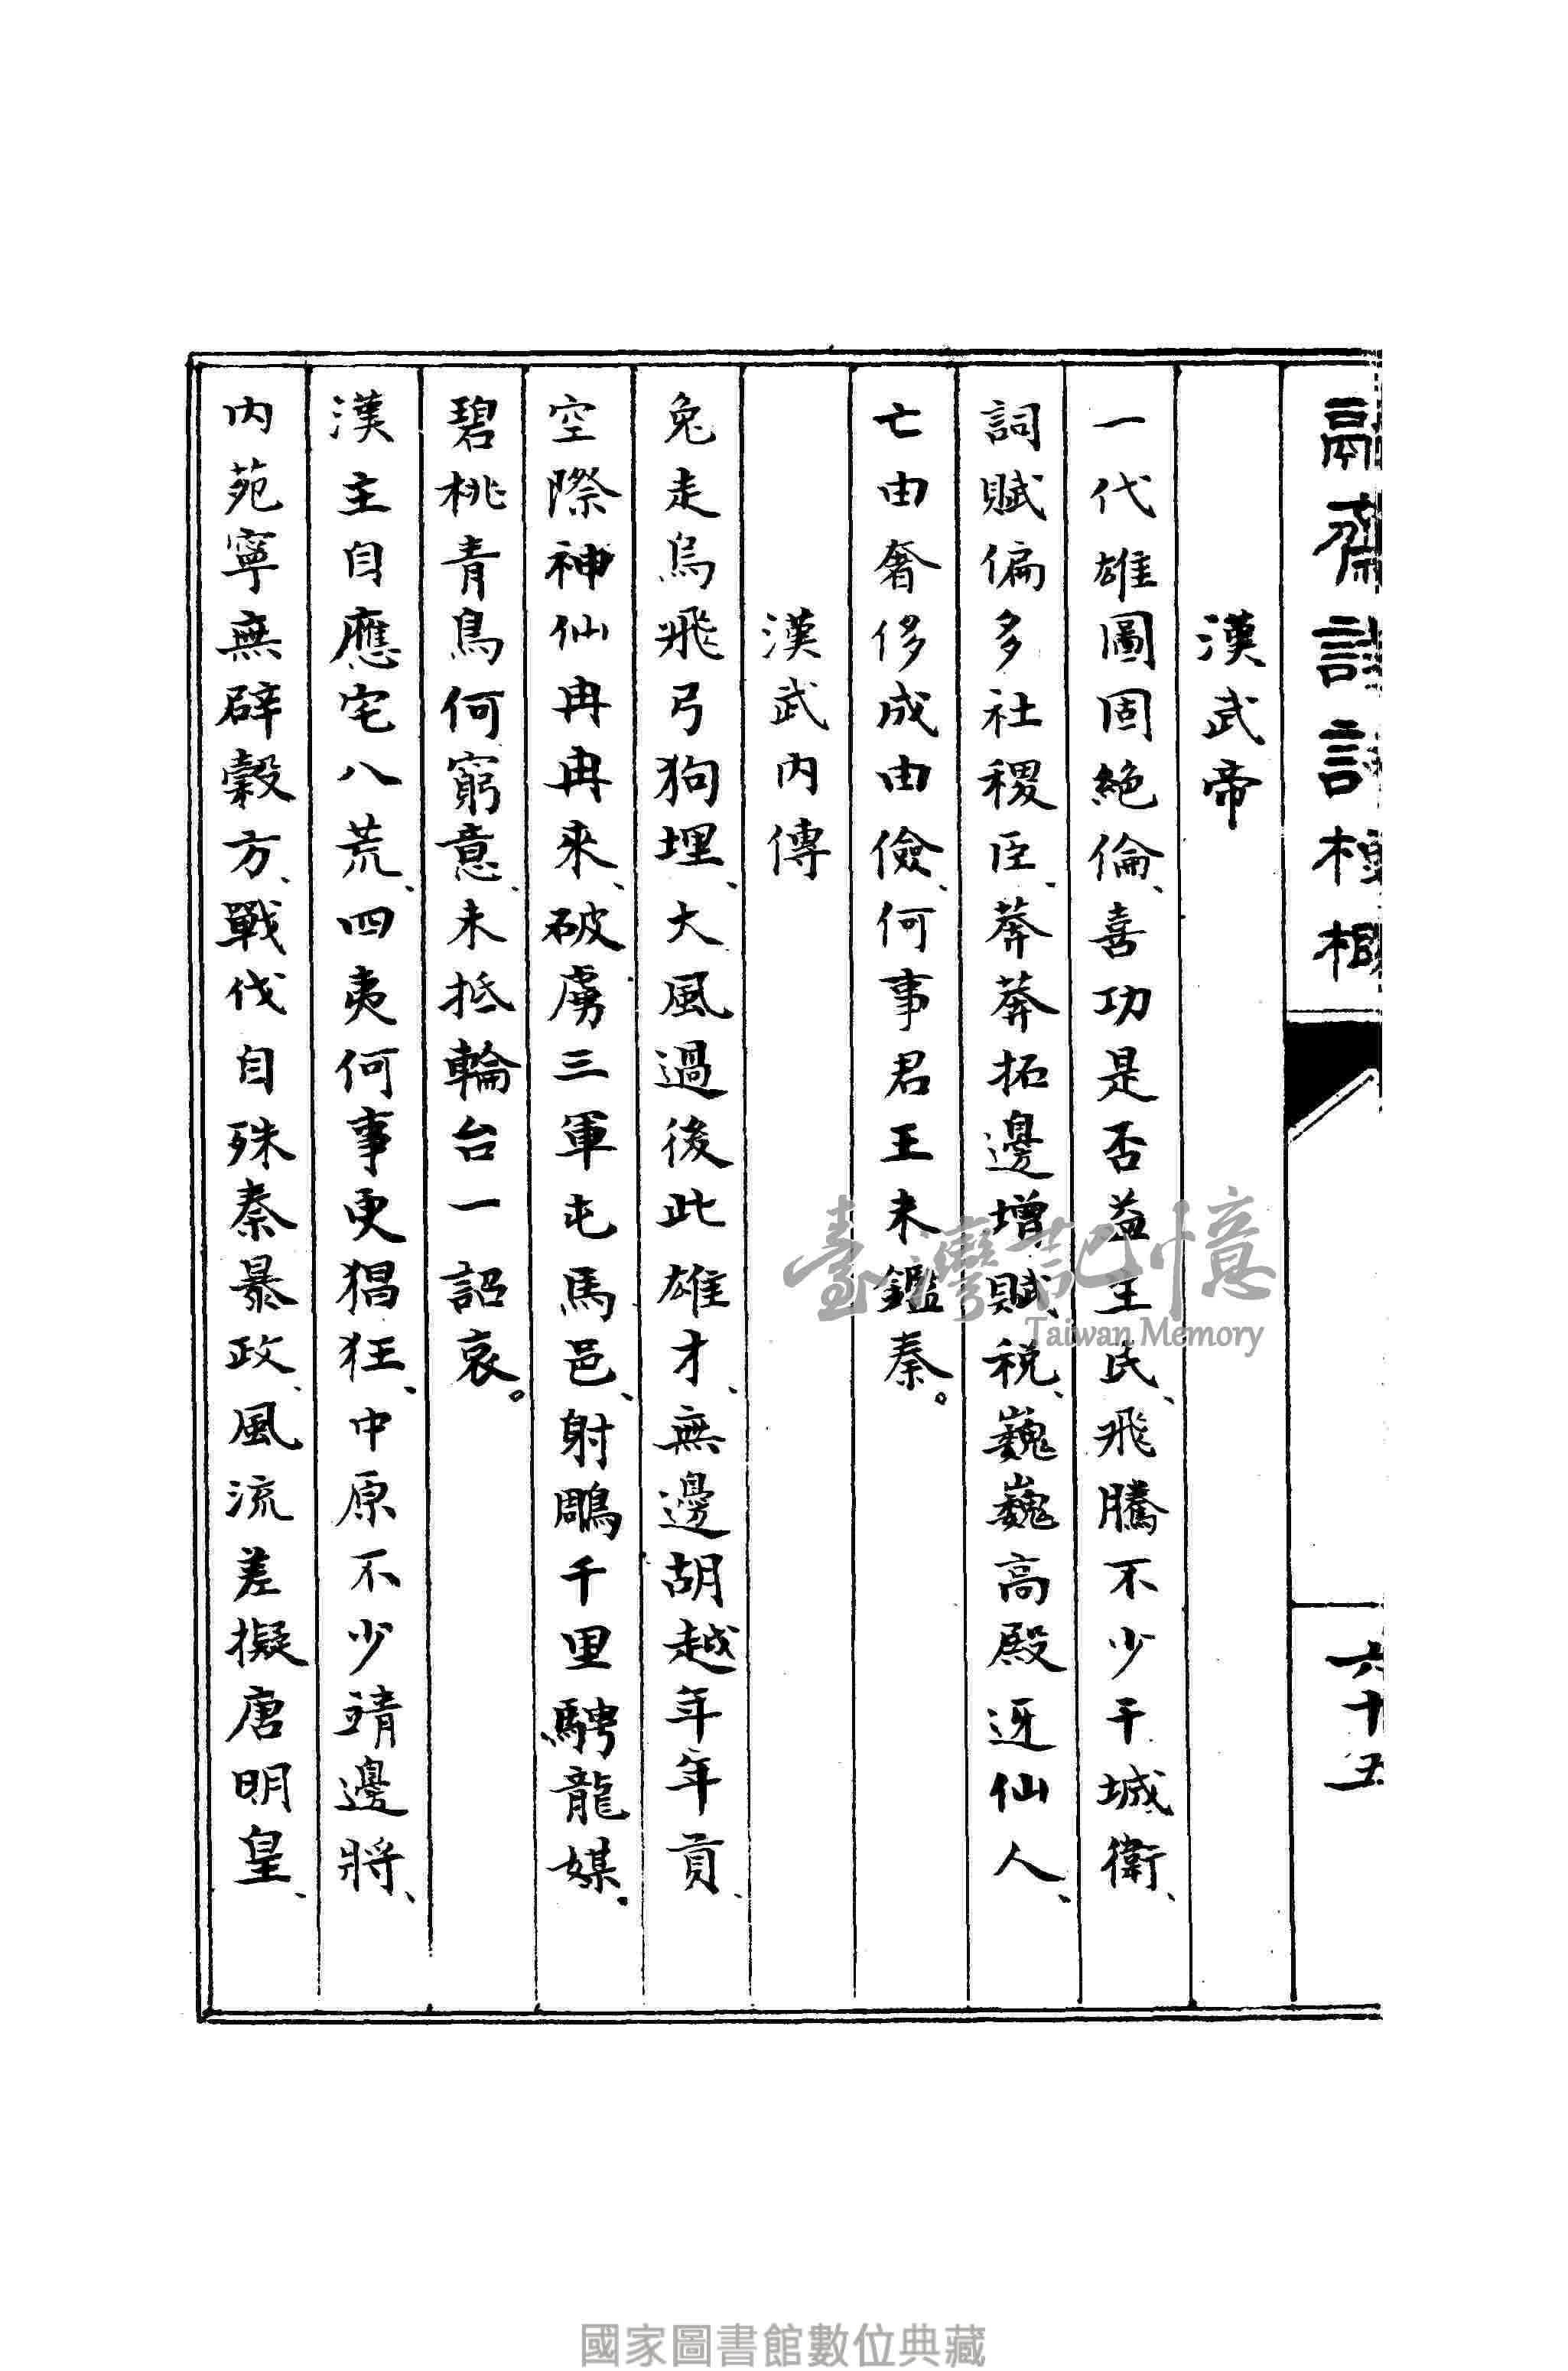 鬲齋詩詞梗概
六十五
漢武帝
一代雄圖固絕倫、喜功是否益主民、飛騰不少干城衛、
詞賦偏多社稷臣、莽莽拓邊增賦稅、巍巍高殿迓仙人、
亡由奢侈成由儉、何事君王未鑑秦。
漢武內傳
兔走烏飛弓狗埋、大風過後此雄才、無邊胡越年年貢、
空際神仙冉冉來、破虜三軍屯馬邑、射鵰千里騁龍媒。
碧桃青鳥何窮意、未抵輪台一詔哀。
漢主自應宅八荒、四夷何事更猖狂、中原不少靖邊將、
內苑寧無辟穀方、戰伐自殊秦暴政、風流差擬唐明皇、
臺灣記憶
Taiwan Memory
國家圖書館數位典藏